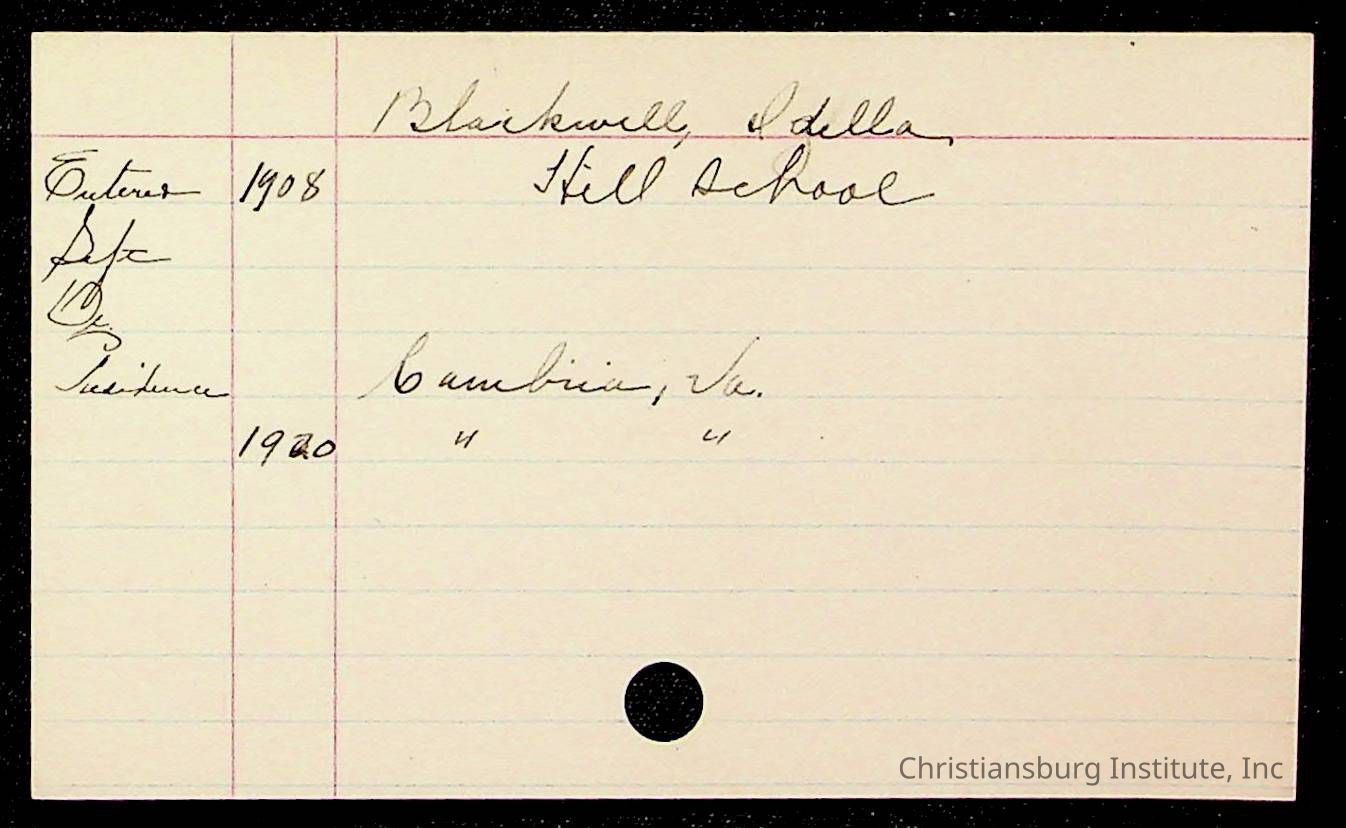 Blackwell, Idella
Entered 1908 Hill School
Left
Residence Cambria, Va.
1920 " "
Christiansburg Institute, Inc